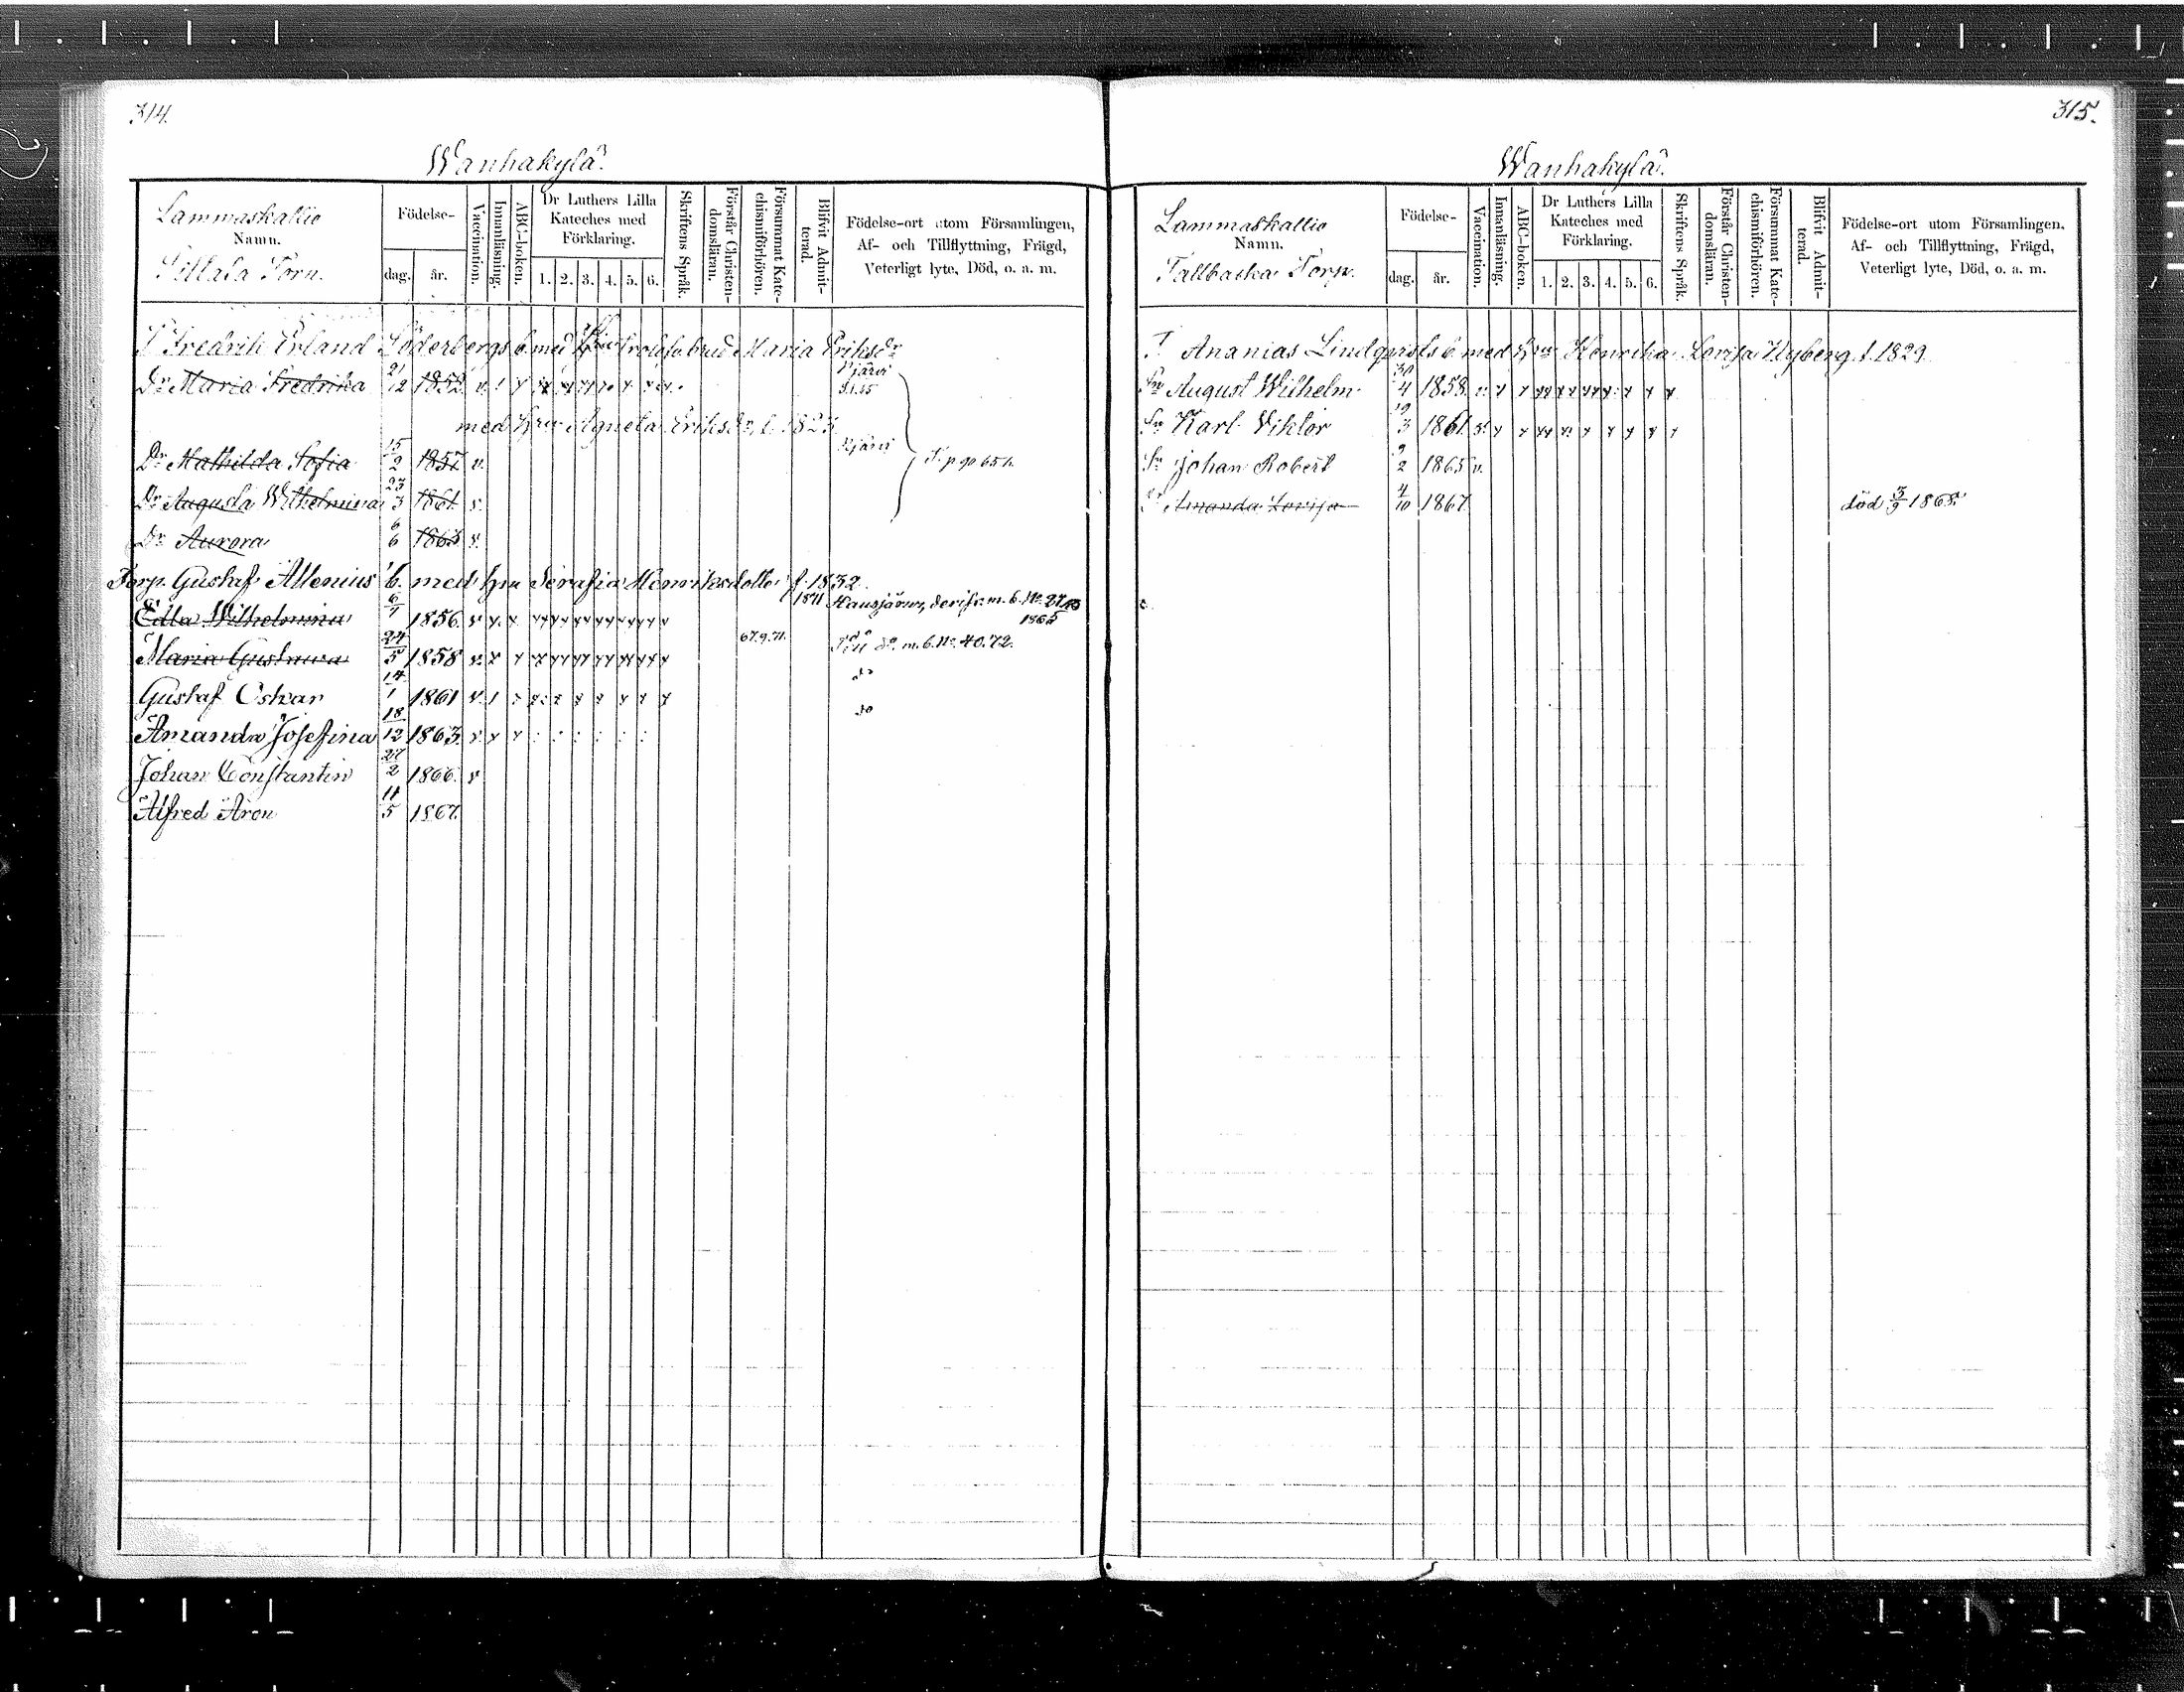 314.
Wanhakylä.
Lammaskallio
Namn.
Födelse-
dag. år.
Vaccination.
Innanläsning.
ABC-boken.
Dr Luthers Lilla
Kateches med
Förklaring.
1. 2. 3. 4. 5. 6.
Skriftens Språk.
Förstår Christen-
domsläran.
Försummat Kate-
chismiförhören.
Blifvit Admit-
terad.
Födelse-ort utom Församlingen,
Af- och Tillflyttning, Frägd,
Veterligt lyte, Död, o. a. m.
T Fredrik Erland Söderbergs b. med Maria Eriksdr
Dr Maria Fredrika 21/12 1852. v.
med hru Agneta Eriksdr, f. 1825
Dr Mathilda Sofia 15/2 1857. v.
Dr Augusta Wilhelmina 23/3 1861. v.
Dr Aurora 6/6 1863 v.
Torp. Gustaf Allenius' b. med hru Serafia Henriksdotter f. 1832.
Edla Wilhelmina 6/7 1856. v 1871 Hausjärvi, m. b. No. 27
1865
Maria Gustawa 24/5 1858 v. 67.9.71. do m. b. No. 40. 72.
Gustaf Oskar 14/1 1861 v. do
Amanda Josefina 18/12 1863. v. do
Johan Constantin 27/2 1866. v
Alfred Aron 11/5 1867.
315.
Wanhakylä.
Lammaskallio
Namn.
Tallbacka Torp.
Födelse-
dag. år.
Vaccination.
Innanläsning.
ABC-boken.
Dr Luthers Lilla
Kateches med
Förklaring.
1. 2. 3. 4. 5. 6.
Skriftens Språk.
Förstår Christen-
domsläran.
Försummat Kate-
chismiförhören.
Blifvit Admit-
terad.
Födelse-ort utom Församlingen,
Af- och Tillflyttning, Frägd,
Veterligt lyte, Död, o. a. m.
T. Ananias Lindqvists b. med hru Henrika Lovisa Nyberg. f. 1829.
Sn August Wilhelm 30/4 1858. v.
Sn Karl Viktor 19/3 1861. v.
Sn Johan Robert 9/2 1865 v.
Amanda Lovisa 4/10 1867. död 3/9 1868.